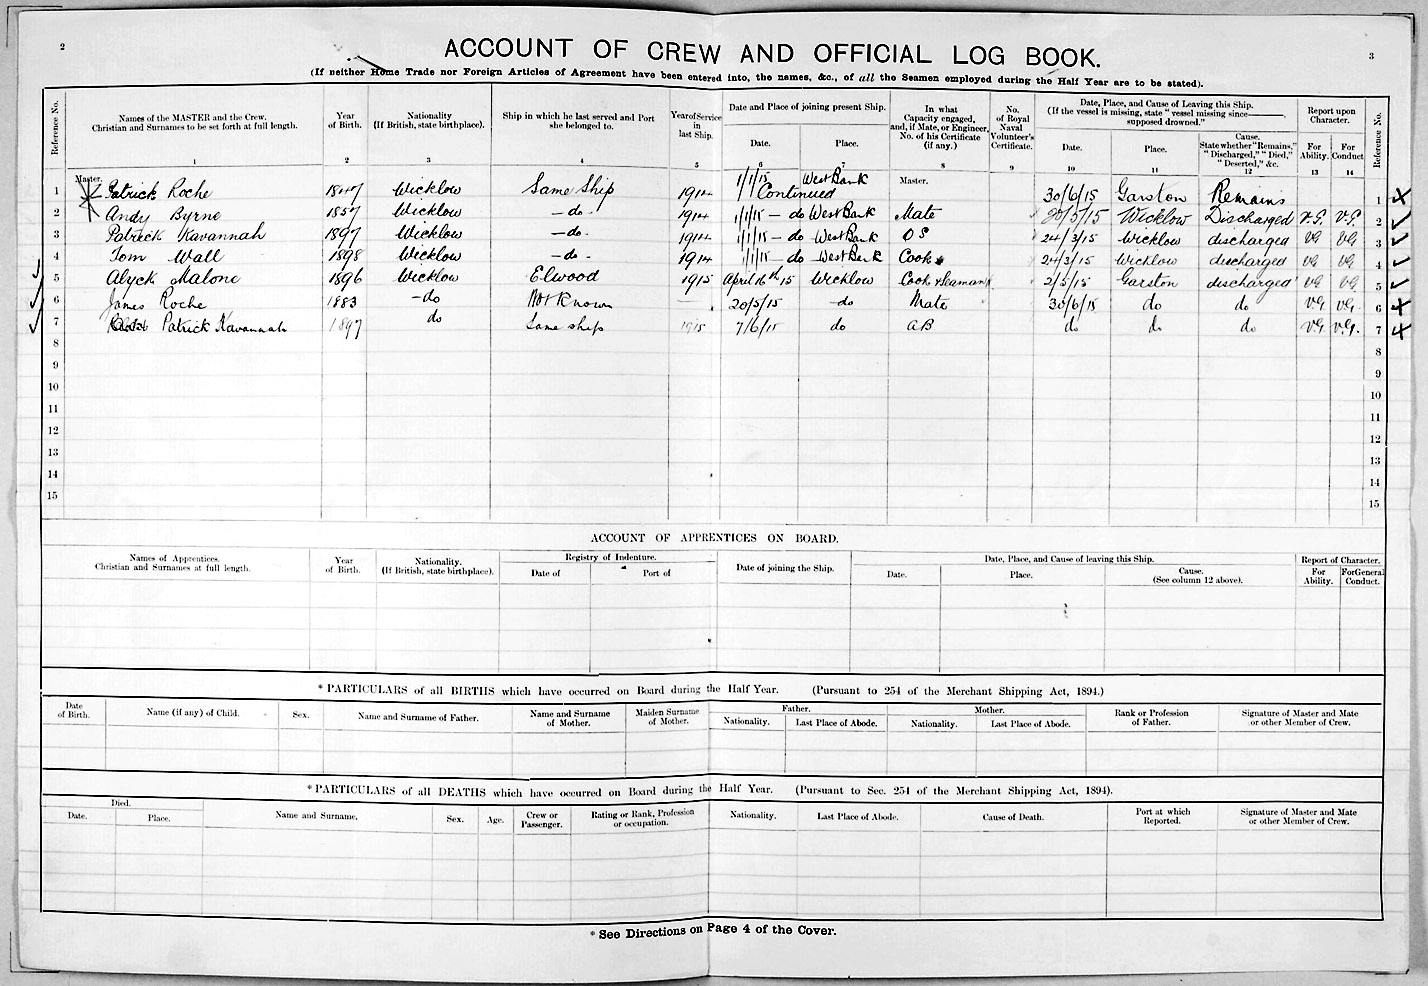 2
3
ACCOUNT OF CREW AND OFFICIAL LOG BOOK.
(If neither Home Trade nor Foreign Articles of Agreement have been entered into, the names, &c., of all the Seamen employed during the Half Year are to be stated).
Reference No. | Names of the MASTER and the Crew. Christian and Surnames to be set forth at full length. | Year of Birth. | Nationality (If British, state birthplace). | Ship in which he last served and Port she belonged to. | Year of Service in last Ship. | Date and Place of joining present Ship. Date. Place. | In what Capacity engaged, and, if Mate, or Engineer, No. of his Certificate (if any.) | No. of Royal Naval Volunteer's Certificate. | Date, Place, and Cause of Leaving this Ship. (If the vessel is missing, state "vessel missing since———, supposed drowned." Date. Place. Cause. State whether "Remains," "Discharged," "Died," "Deserted," &c. | Report upon Character. For Ability. For Conduct | Reference No.
1 2 3 4 5 6 7 8 9 10 11 12 13 14
1 Master. Patrick Roche 1847 Wicklow Same Ship 1914 1/1/15 Continued West Bank Master. 30/6/15 Garston Remains 1
2 Andy Byrne 1857 Wicklow - do - 1914 1/1/15 - do West Bank Mate 20/5/15 Wicklow Discharged V.G. V.G. 2
3 Patrick Kavannah 1897 Wicklow - do - 1914 1/1/15 - do West Bank OS 24/3/15 Wicklow discharged VG VG 3
4 Tom Wall 1898 Wicklow - do - 1914 1/1/15 - do West Bank Cook 24/3/15 Wicklow discharged VG VG 4
5 Alyck Malone 1896 Wicklow Elwood 1915 April 16th 15 Wicklow Cook & Seaman 2/5/15 Garston discharged VG VG 5
6 James Roche 1883 - do Not Known 20/5/15 - do Mate 30/6/15 do do V.G. V.G. 6
7 Patrick Kavannah 1897 do Same ship 1915 7/6/15 do AB do do do V.G. V.G. 7
8 8
9 9
10 10
11 11
12 12
13 13
14 14
15 15
ACCOUNT OF APPRENTICES ON BOARD.
Names of Apprentices. Christian and Surnames at full length. | Year of Birth. | Nationality. (If British, state birthplace). | Registry of Indenture. Date of Port of | Date of joining the Ship. | Date, Place, and Cause of leaving this Ship. Date. Place. Cause. (See column 12 above). | Report of Character. For Ability. For General Conduct.
*PARTICULARS of all BIRTHS which have occurred on Board during the Half Year. (Pursuant to 254 of the Merchant Shipping Act, 1894.)
Date of Birth. | Name (if any) of Child. | Sex. | Name and Surname of Father. | Name and Surname of Mother. | Maiden Surname of Mother. | Father. Nationality. Last Place of Abode. | Mother. Nationality. Last Place of Abode. | Rank or Profession of Father. | Signature of Master and Mate or other Member of Crew.
*PARTICULARS of all DEATHS which have occurred on Board during the Half Year. (Pursuant to Sec. 254 of the Merchant Shipping Act, 1894).
Died. Date. Place. | Name and Surname. | Sex. | Age. | Crew or Passenger. | Rating or Rank, Profession or occupation. | Nationality. | Last Place of Abode. | Cause of Death. | Port at which Reported. | Signature of Master and Mate or other Member of Crew.
* See Directions on Page 4 of the Cover.